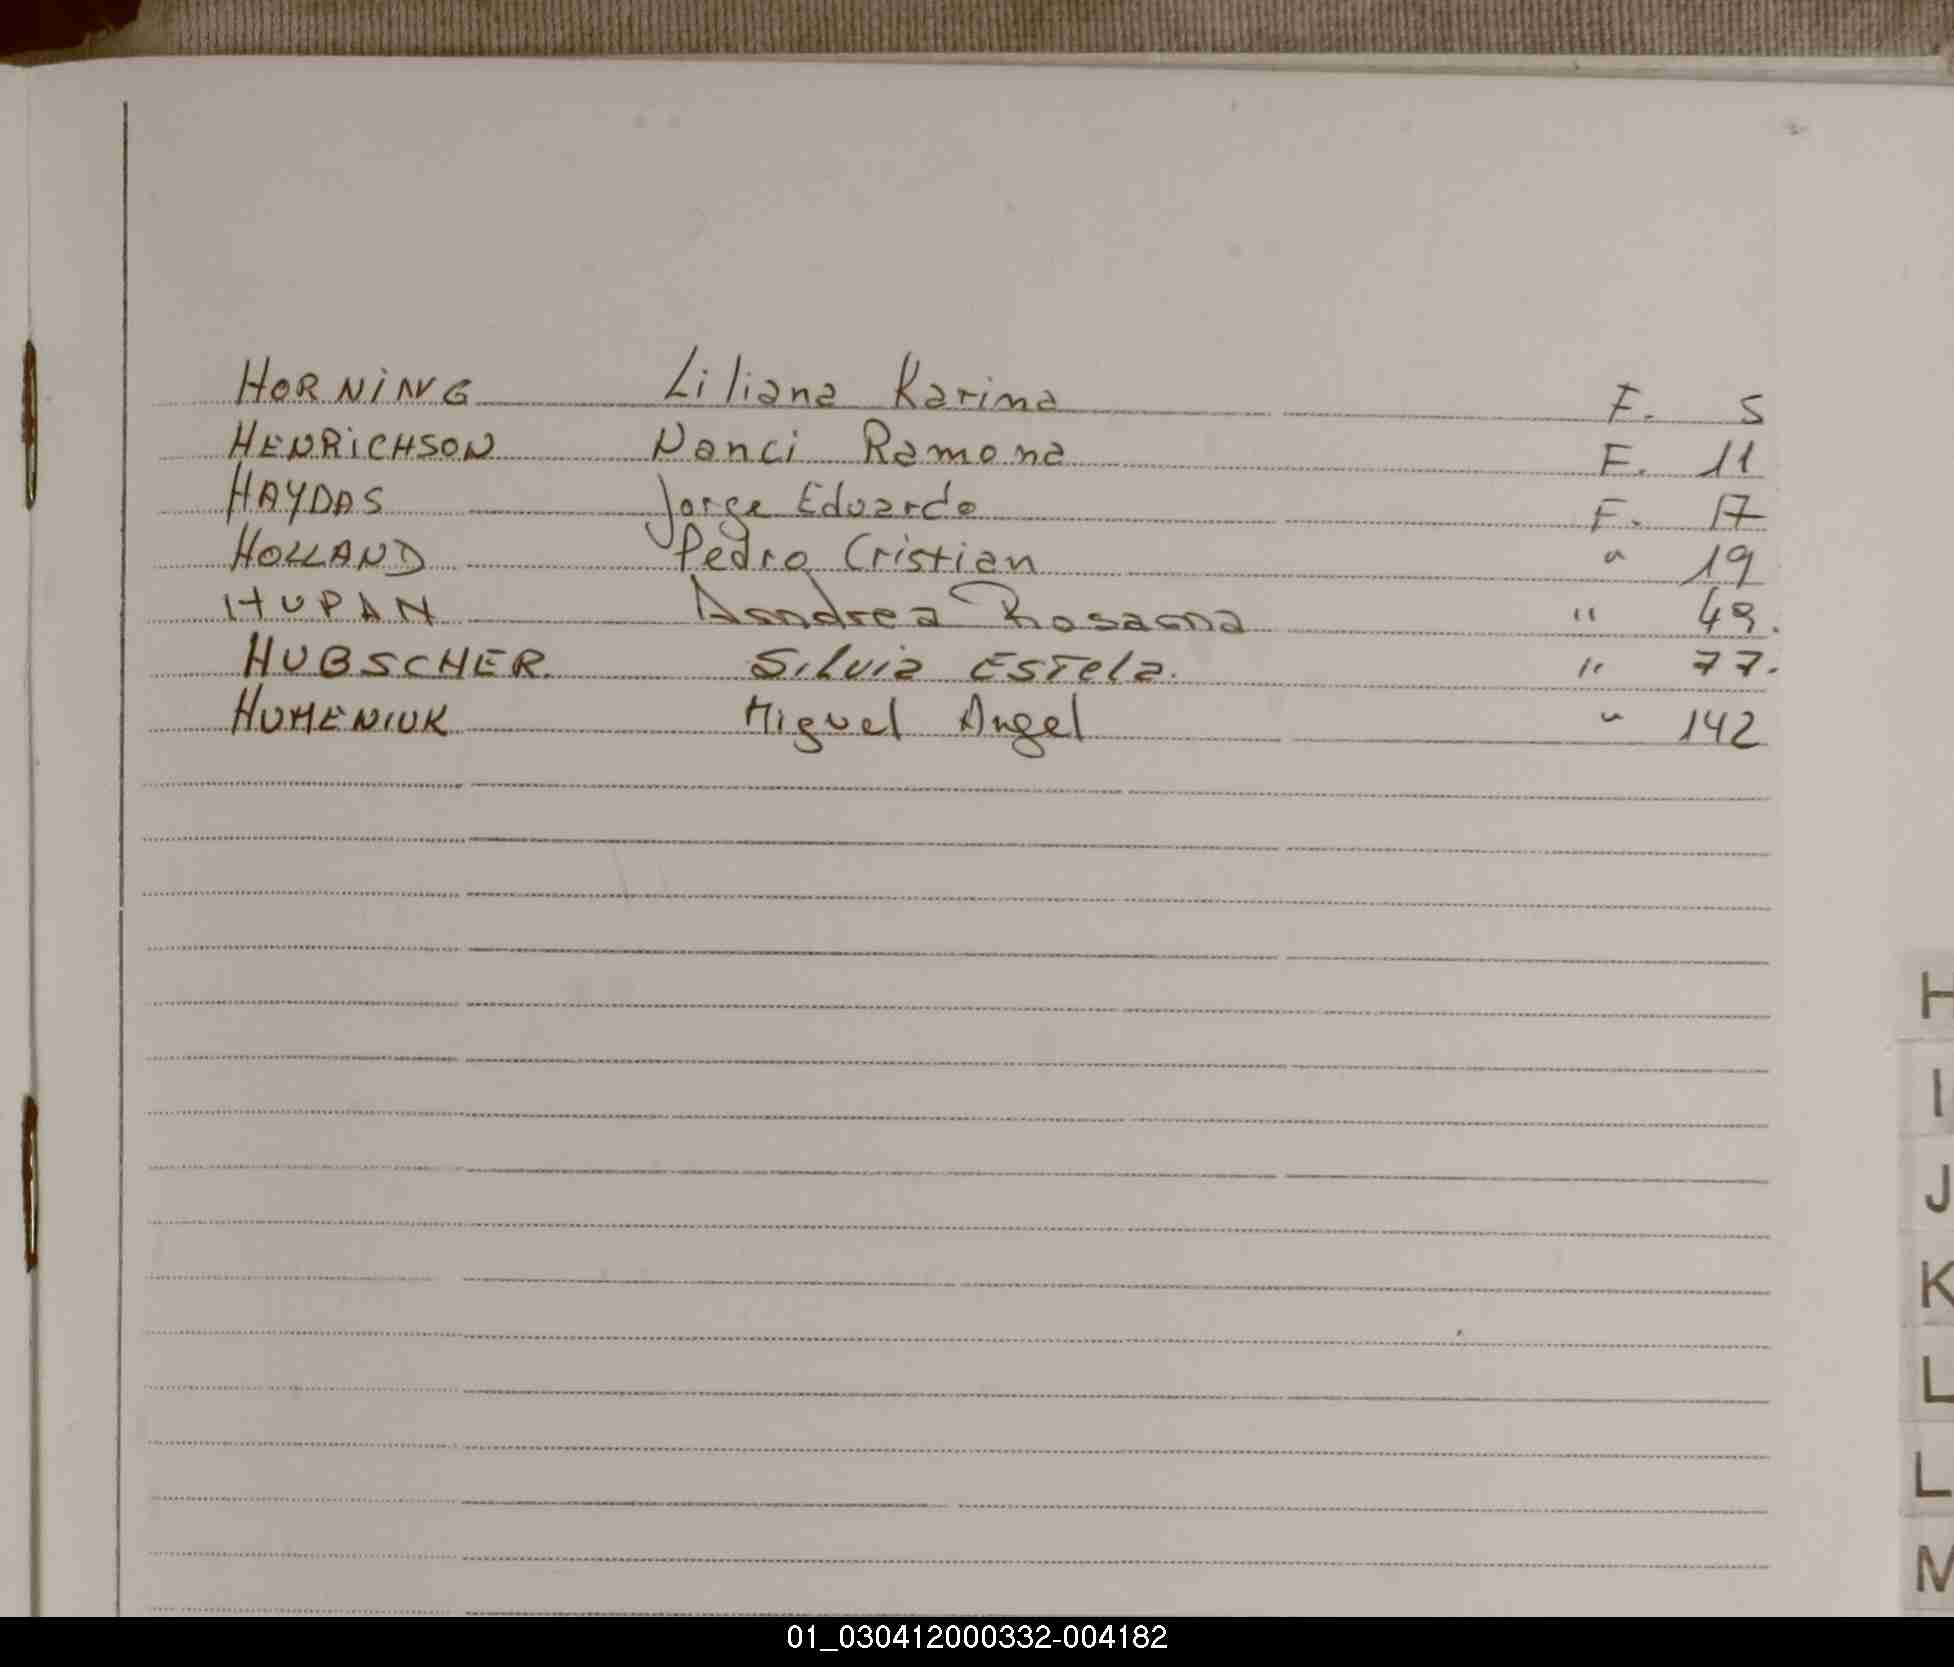 HORNING Liliana Karina F. 5
HENRICHSON Nanci Ramona F. 11
HAYDAS Jorge Eduardo F. 17
HOLLAND Pedro Cristian " 19
HUPAN Andrea Rosana " 49.
HUBSCHER. Silvia Estela. " 77.
HUMENIUK Miguel Angel " 142
H
I
J
K
L
L
M
01_030412000332-004182